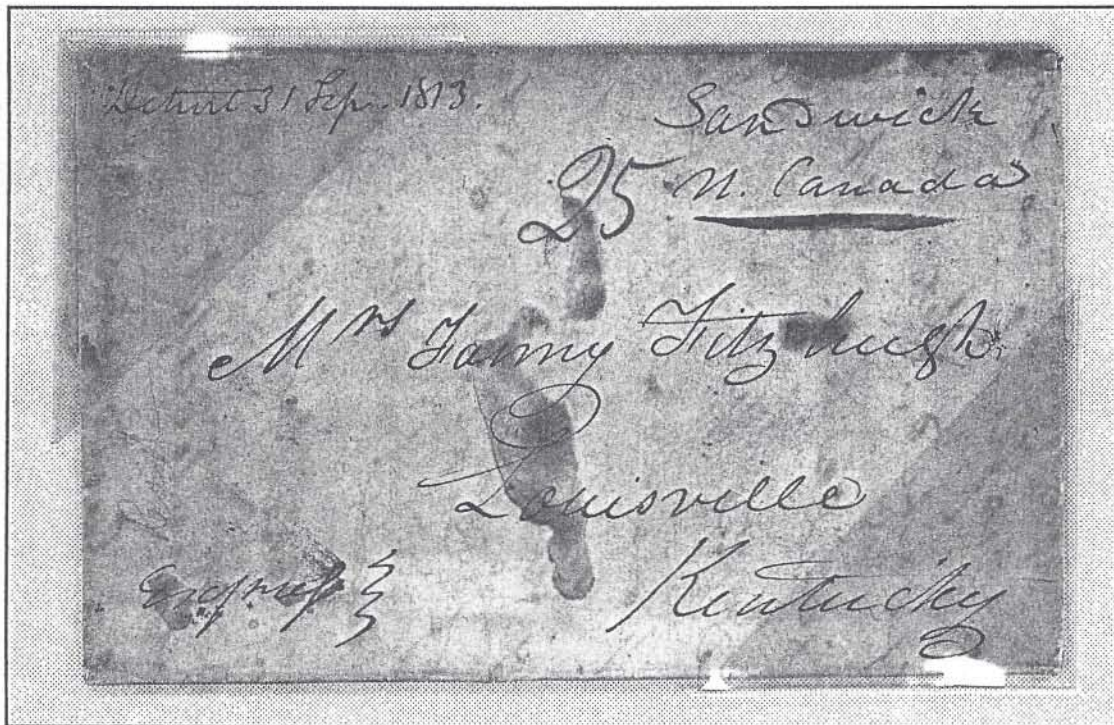 Detroit 31 Sep. 1813.
Sandwich
25 U. Canada
Mrs Fanny Fitzhugh
Louisville
Kentucky